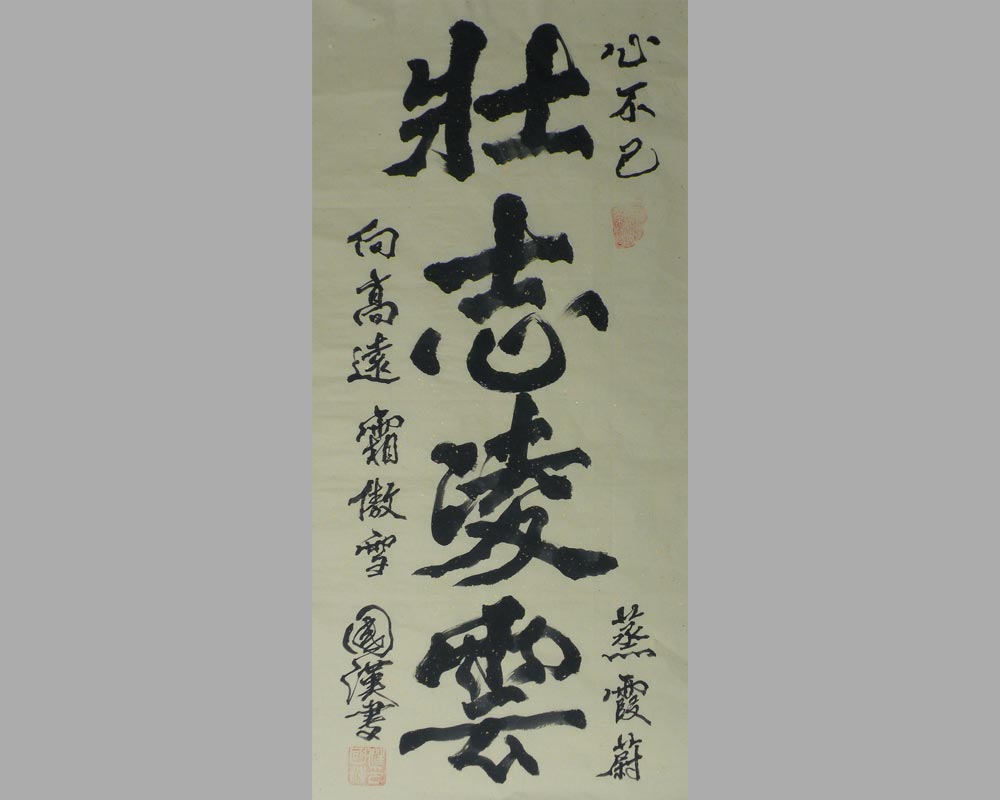 心不已
蒸霞蔚
壮志凌雲
向高遠
霜傲雪
國漢書